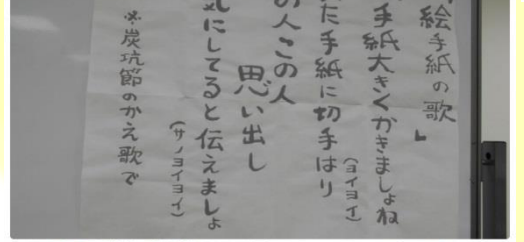 絵手紙の歌」
手紙大きくかきましょね
(ヨイヨイ)
た手紙に切手はり
の人この人
思い出し
気にしてると伝えましょ
(サノヨイヨイ)
※炭坑節のかえ歌で